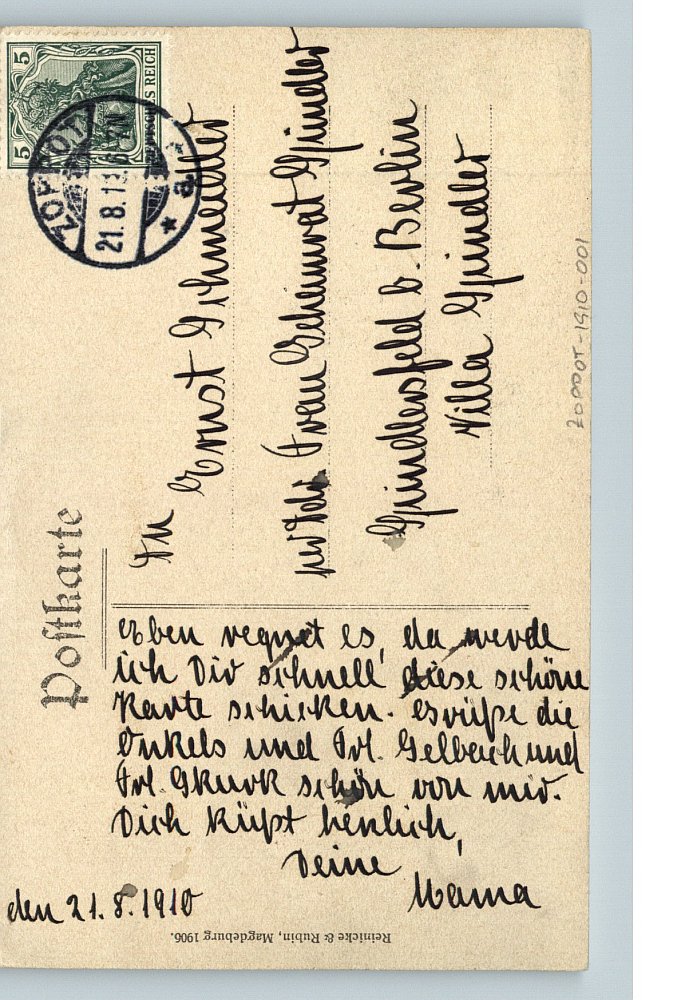 Postkarte
5 5
DEUTSCHES REICH
ZOPPOT
21.8.10 6-7N
* a.
An
Ernst Schmedder
Frau Geheimrat Grindler
Grindlersfeld b. Berlin
Villa Grindler
Eben regnet es, da werde
ich Dir schnell diese schöne
Karte schicken. Grüße die
Onkels und Frl. Gelbach und
Frl. Skurk schön von mir.
Dich küßt herzlich,
Deine
Mama
den 21.8.1910
Reinicke & Rubin, Magdeburg 1906.
ZOPPOT-1910-001